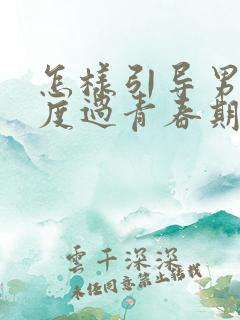 怎样引导男
度过青春期
雲千深深
未经同意禁止转载